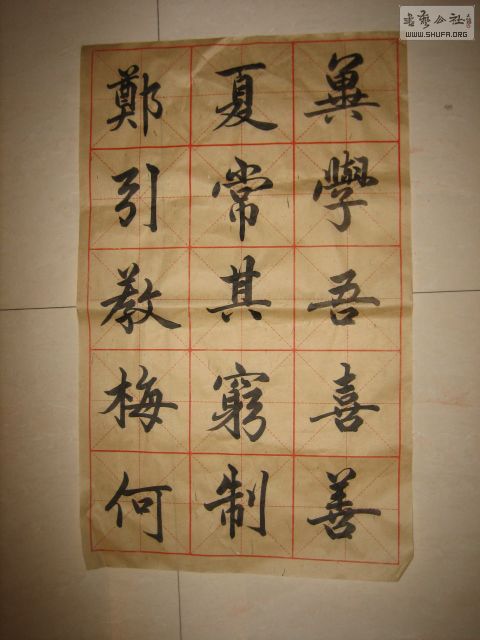 學吾喜善
夏常其窮制
鄭引教梅何
書藝公社
WWW.SHUFA.ORG